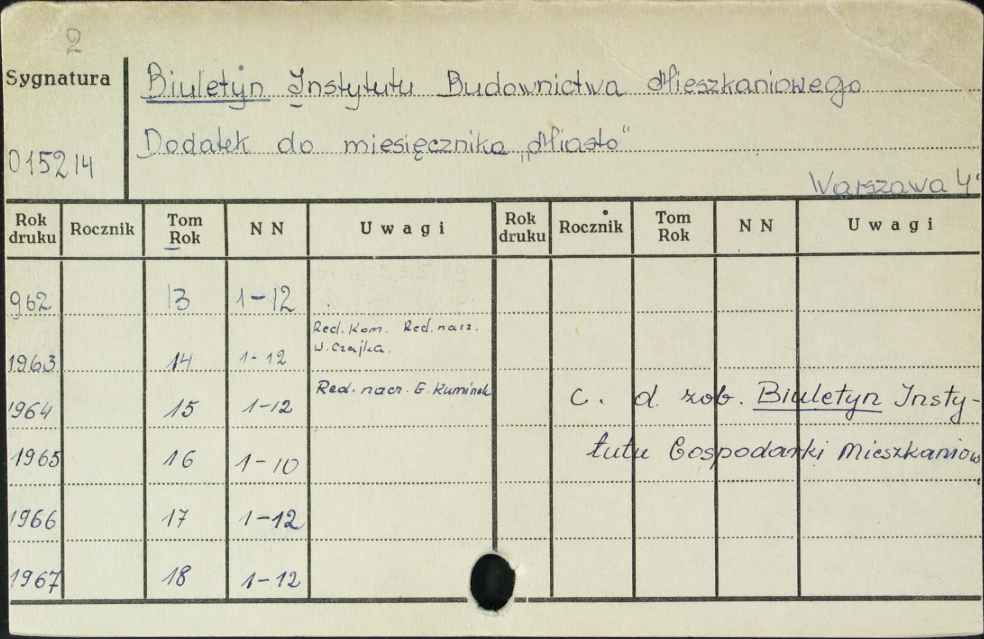 2
Sygnatura
Biuletyn Instytutu Budownictwa Mieszkaniowego
Dodatek do miesięcznika „Miasto"
015214
Warszawa 4°
Rok druku Rocznik Tom Rok N N Uwagi Rok druku Rocznik Tom Rok N N Uwagi
962 13 1-12
1963 14 1-12 Red. Kom. Red. nacz. W. Czajka.
1964 15 1-12 Red. nacz. G. Kuminek c. d. zob. Biuletyn Insty-
1965 16 1-10 tutu Gospodarki Mieszkaniow
1966 17 1-12
1967 18 1-12